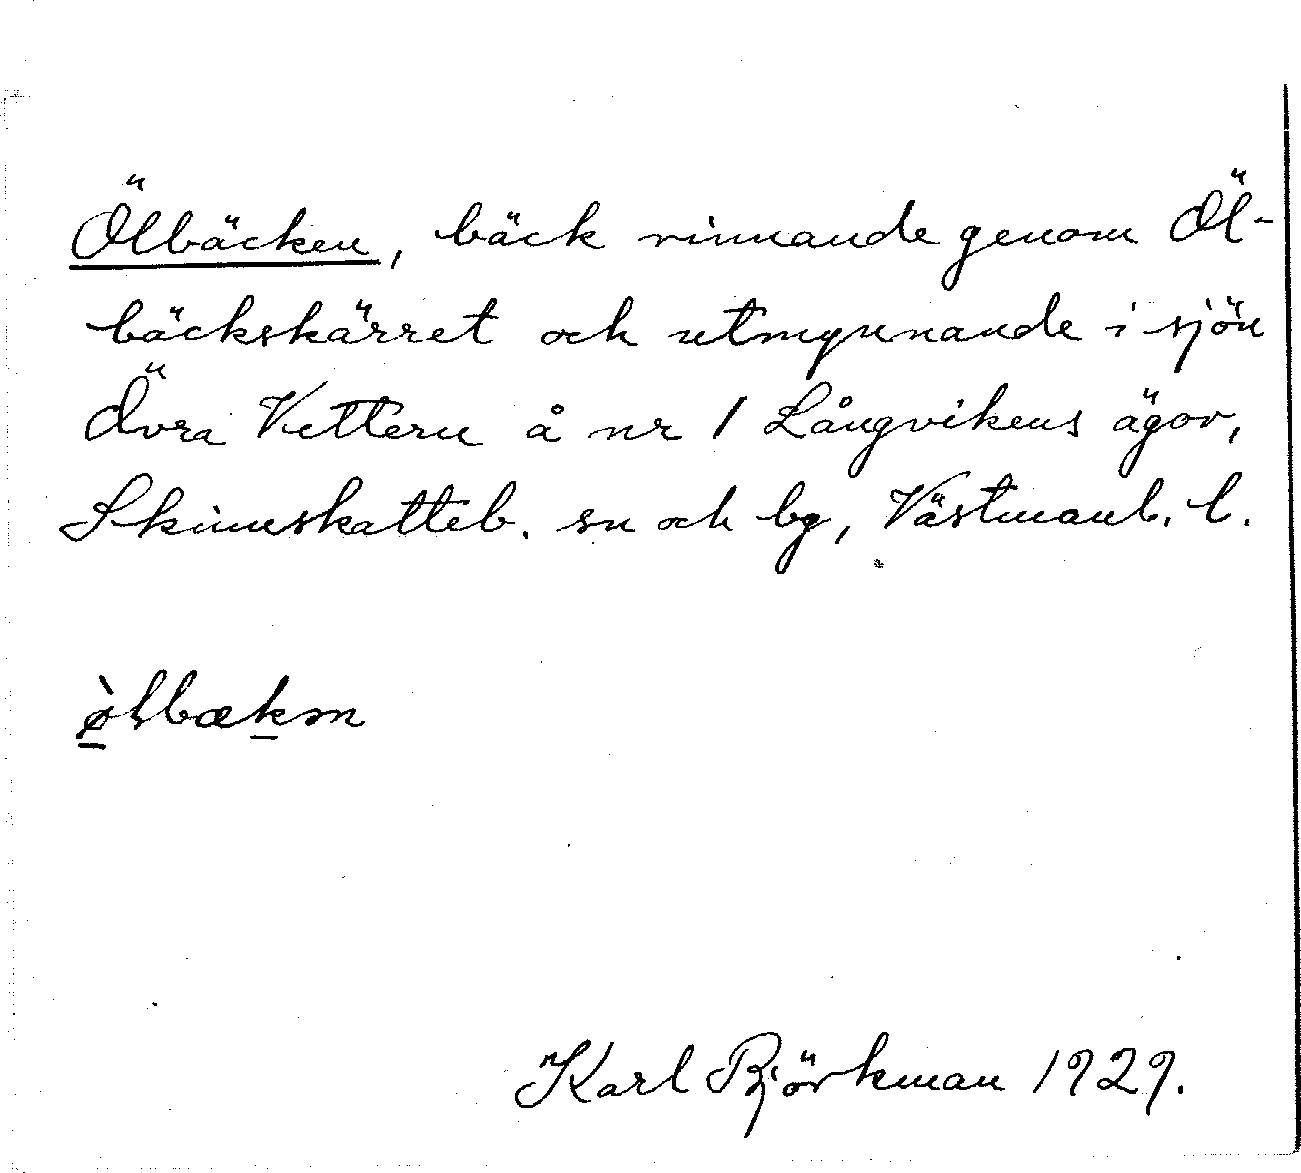 Ölbäcken, bäck rinnande genom Öl-
bäckskärret och utmynnande i sjön
Övra Vettern å nr 1 Långvikens ägor,
Skinnskatteb. sn och bg, Västmanl. l.
ø̀lbækən
Karl Björkman 1929.